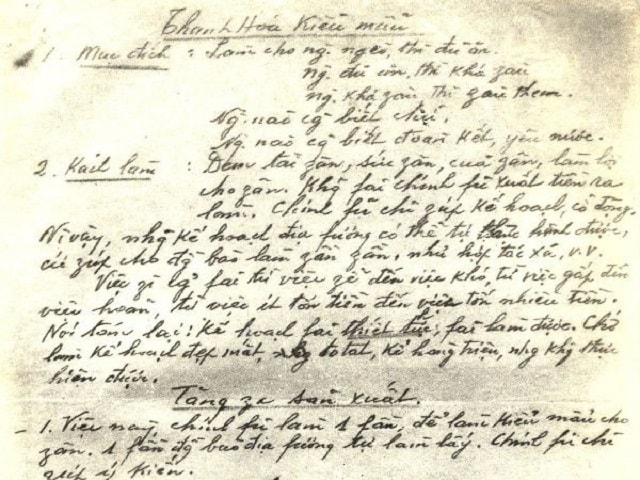 Thanh Hoá kiểu mẫu
1. Mục đích : Làm cho ng. nghèo, thì đủ ăn.
ng. đủ ăn, thì khá zàu
ng. khá zàu thì zàu thêm.
Ng. nào cg biết chữ.
Ng. nào cg biết đoàn kết, yêu nước.
2. Kách làm : Đem tài zân, sức zân, của zân, làm lợi
cho zân. Khg fải chính fủ xuất tiền ra
làm. Chính fủ chỉ zúp kế hoạch, cổ động.
Vì vậy, nhg kế hoạch địa fương có thể tự thực hành được,
cứ zúp cho đg bào làm zần zần, như hợp tác xã, v.v.
Việc gì cg fải từ việc zễ đến việc khó, từ việc gấp đến
việc hoãn, từ việc ít tốn tiền đến việc tốn nhiều tiền.
Nói tóm lại: Kế hoạch fải thiết thực, fải làm được. Chớ
làm kế hoạch đẹp mắt, to tát, kể hàng triệu, nhg khg thực
hiện được.
Tăng za sản xuất.
- 1. Việc này, chính fủ làm 1 fần, để làm kiểu mẫu cho
zân. 1 fần đg bào địa fương tự làm lấy. Chính fủ chỉ
zúp ý kiến.